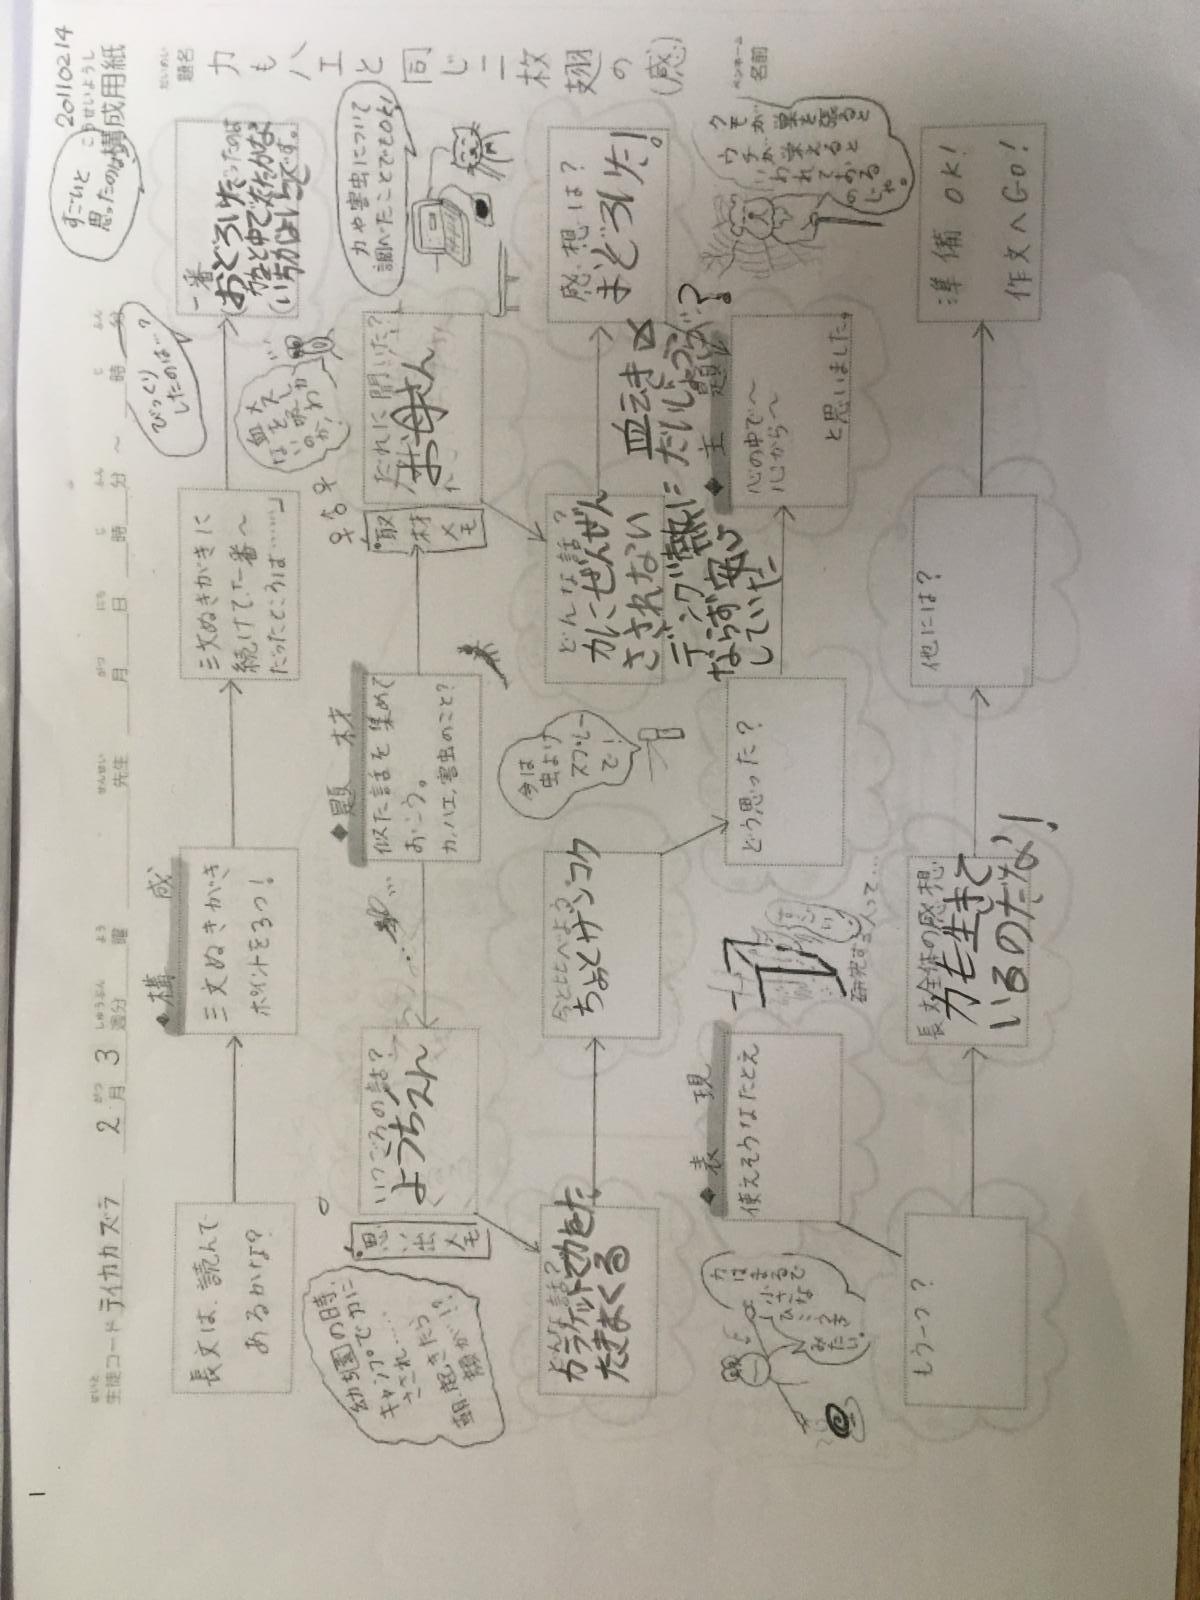 20110214
こうせいようし
構成用紙
すごいと
思ったのは
だいめい
題名
カもハエと同じ二枚翅の(感)
ペンネーム
名前
せいと
生徒コード テイカカズラ
2月 3週 
がつ
しゅうぶん
週分
よう
曜
せんせい
先生
がつ
月
にち
日
じ
時
ふん
分
～
じ
時
ふん
分
びっくり
したのは…?
長文は、読んで
あるかな?
◆構成
三文ぬきがき
ポイントをろっ!
三文ぬきがきに
続けて「一番～
だったところは……」
一番
(おどろいた)だったのは
です。
血をメスし
は
幼稚園の時、
キャンプでカに
さされ……
朝、起きたら
顔が…!?
思い出メモ
いつごろの話?
ようちえん
◆題材
似た話を集めて
おこう。
カ、ハエ、害虫のこと?
取材メモ
だれに聞いた?
お母さん
カや害虫について
調べたことでもOK!
どんな話?
カラケットでカをた
たきまくる
今とくらべよう
ちょとザンコク
今は
虫よけ
スプレー
で!
どんな話?
カにぜんぜん
さされない
デング熱に
ならず安心
していた
感想は?
おどろいた!
血云き
だいじょうぶ?
カはまるで
小さな
みたい。
◆表現
使えそうなたとえ
研究する人って…
どう思った?
◆主題
心の中で～
心から～
と思いました。
クモが巣を張ると
ウチが栄えると
いわれて
おる
のじゃ。
もう一つ?
長文全体の感想
カも生きて
いるのだな!
他には?
準備OK!
作文へGO!
1